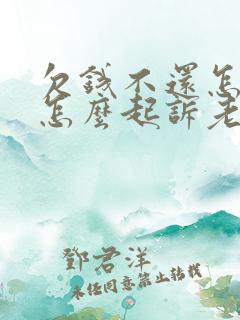 欠錢不還怎
怎麼起訴老
鄧君洋
未經同意禁止轉載